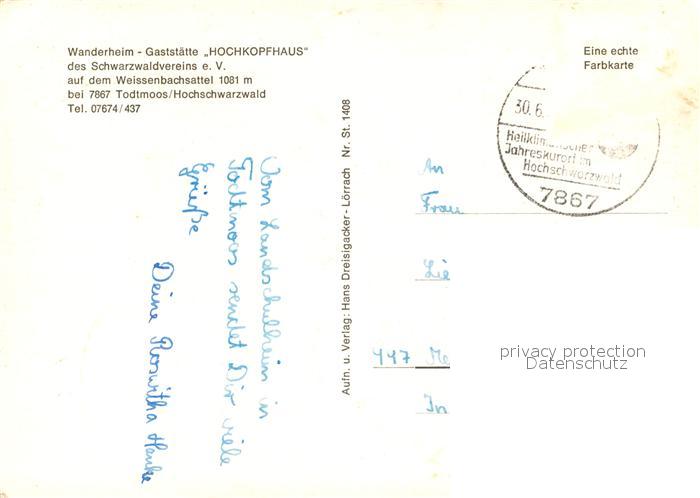 Wanderheim - Gaststätte „HOCHKOPFHAUS"
des Schwarzwaldvereins e. V.
auf dem Weissenbachsattel 1081 m
bei 7867 Todtmoos/Hochschwarzwald
Tel. 07674/437
Eine echte
Farbkarte
30.6.
Heilklimatischer
Jahreskurort im
Hochschwarzwald
7867
Vom Landschulheim in
Todtmoos sendet Dir viele
Grüße
Deine Roswitha Hanke
Aufn. u. Verlag: Hans Dreisigacker - Lörrach Nr. St. 1408
An
Frau
Lie
447 Me
In
privacy protection
Datenschutz